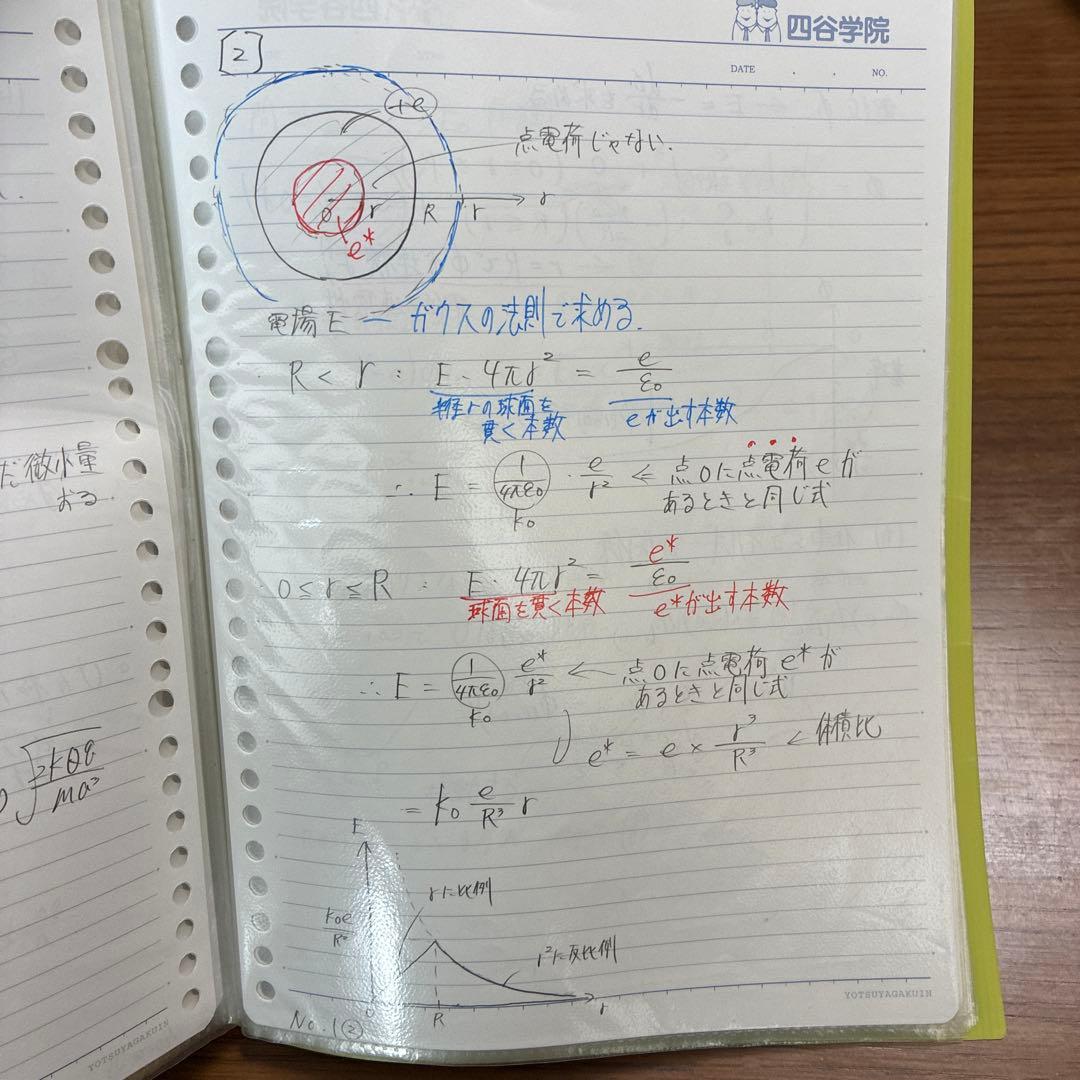 四谷学院
DATE . . NO.
[2]
+e
点電荷じゃない.
O r R r r
e*
電場E ー ガウスの法則で求める.
R < r : E・4πr² = e/ε₀
半径rの球面を 貫く本数 eが出す本数
∴ E = 1/4πε₀ ・ e/r² ← 点Oに点電荷eが
k₀ あるときと同じ式
0 ≤ r ≤ R : E・4πr² = e*/ε₀
球面を貫く本数 e*が出す本数
∴ E = 1/4πε₀ e*/r² ← 点Oに点電荷e*が
k₀ あるときと同じ式
e* = e × r³/R³ < 体積比
= k₀ e/R³ r
E
rに比例
k₀e/R²
r²に反比例
0 R r
No.1②
YOTSUYAGAKUIN
だ微小量
おる
√2kQq/ma³
YOTSUYAGAKUIN